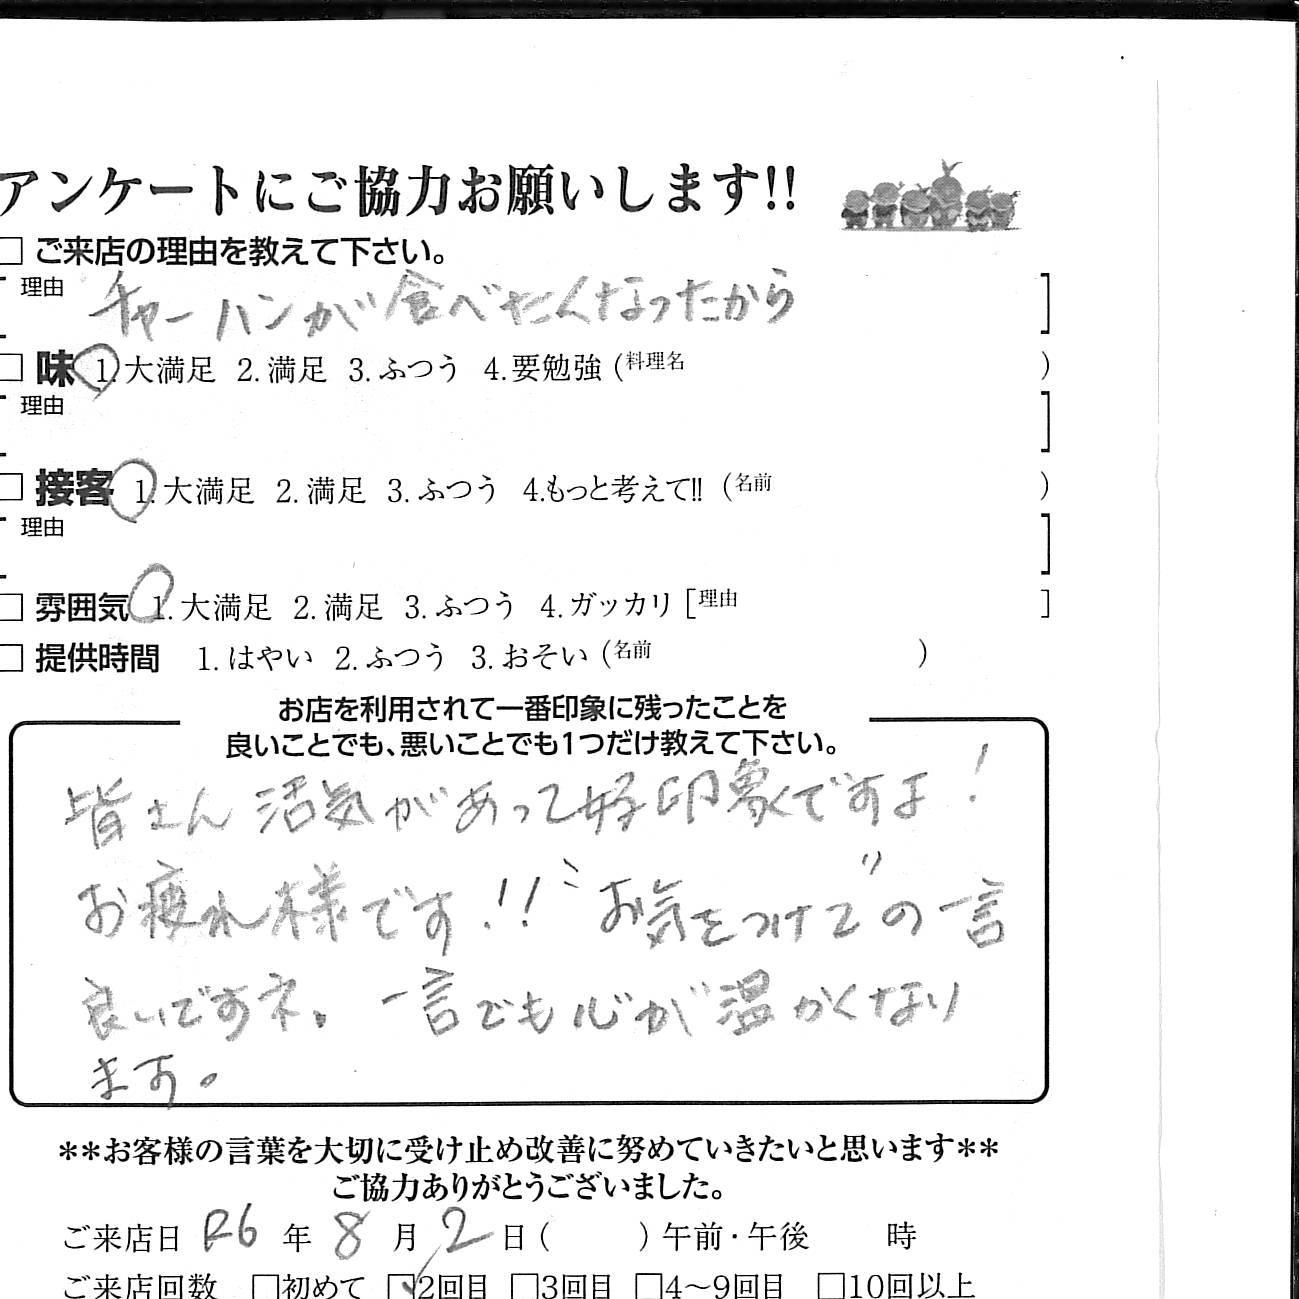 アンケートにご協力お願いします!!
□ ご来店の理由を教えて下さい。
理由 チャーハンが食べたくなったから
□ 味 1.大満足 2.満足 3.ふつう 4.要勉強 (料理名 )
理由
□ 接客 1.大満足 2.満足 3.ふつう 4.もっと考えて!! (名前 )
理由
□ 雰囲気 1.大満足 2.満足 3.ふつう 4.ガッカリ [理由 ]
□ 提供時間 1.はやい 2.ふつう 3.おそい (名前 )
お店を利用されて一番印象に残ったことを
良いことでも、悪いことでも1つだけ教えて下さい。
皆さん活気があって好印象ですよ!
お疲れ様です!! "お気をつけて"の一言
良いですネ。一言でも心が温かくなり
ます。
**お客様の言葉を大切に受け止め改善に努めていきたいと思います**
ご協力ありがとうございました。
ご来店日 R6 年 8 月 2 日 ( ) 午前・午後 時
ご来店回数 □初めて ☑2回目 □3回目 □4〜9回目 □10回以上